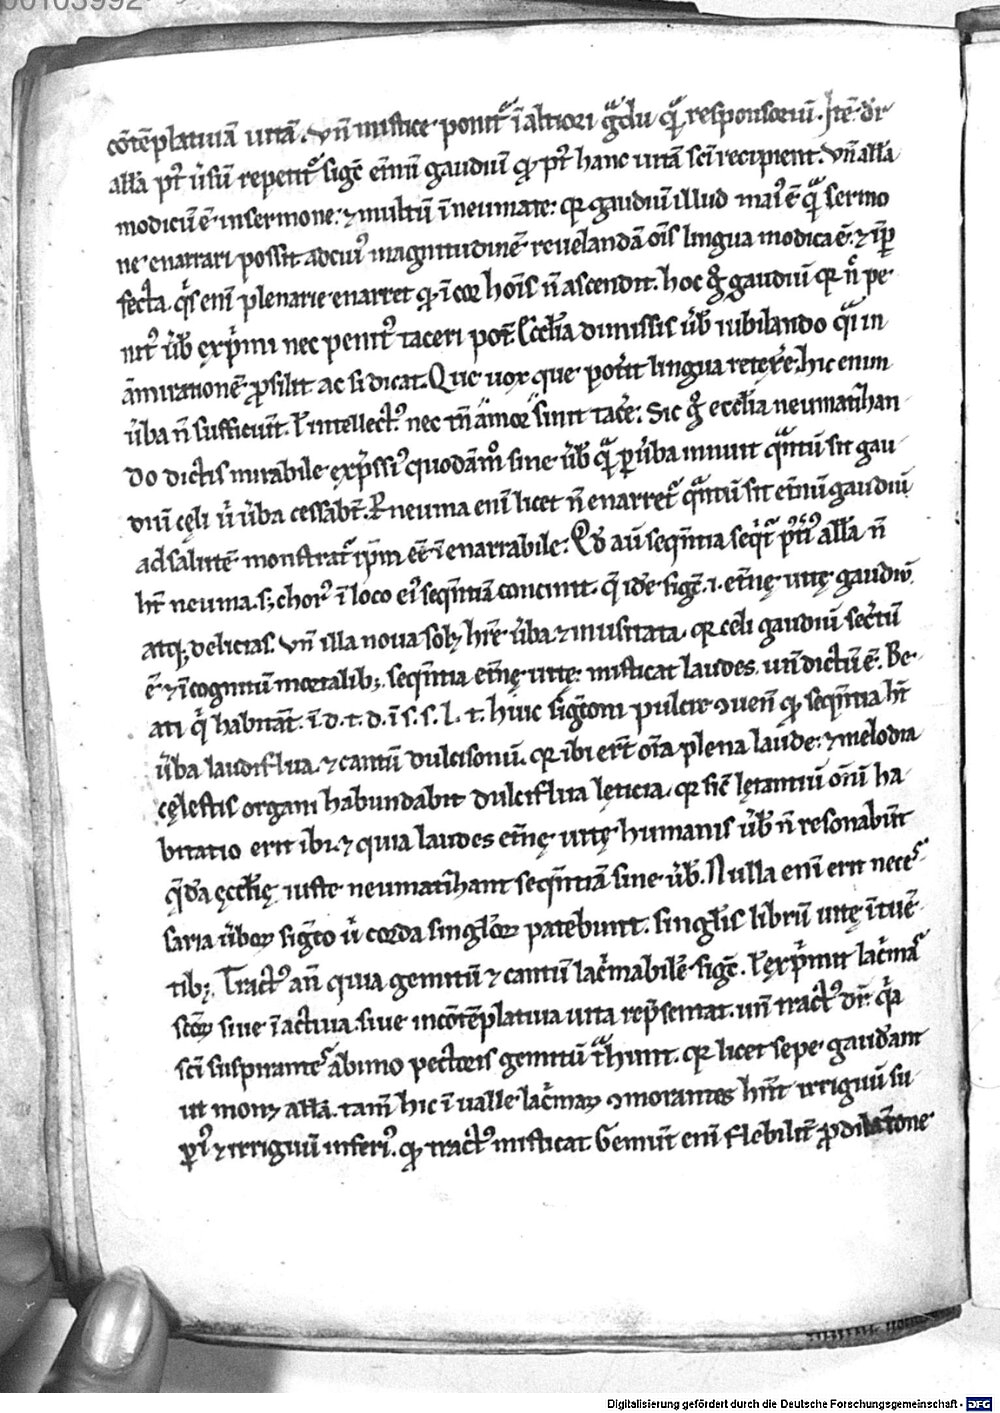 00103992
cōtēplatiuā uitā. vn̄ mistice ponit᷑ ī altiori gͣdu qͣ responsoriū. Itē dr̄
all̄a pꝰt ūsū repetit᷑ sigͨ et̄nū gaudiū qd pꝰt hanc uitā sc̄i recipient. vn̄ all̄a
modicū ē in sermone: ⁊ multū ī neumate: qr gaudiū illud maiꝰ ē qͣ sermo
ne enarrari possit. ad cuiꝰ magnitudinē reuelandā oīs lingua modica ē: ⁊ īp
fecta. qͥs enī plenarie enarret qd ī cor hoīs n̄ ascendit. hoc gͦ gaudiū qr nͨ pe
nitꝰ ūb exp̄mi nec penitꝰ taceri pot̄. Eccl̄ia dimissis ūb iubilando qͣi in
āmirationē ꝓsilit ac si dicat. Que uox que pot̄it lingua retex̄e: hic enim
ūba n̄ sufficiūt. l̄ intellectꝰ nec tn̄ amor sinit tac̄e: Sic gͦ eccl̄ia neumatihan
do dictis mirabile exp̄ssiꝰ quodāmͦ sine ūb qͣ ꝑ ūba innuit qͣntū sit gau
diū cęli ū ūba cessabt̄. Pneuma enī licet n̄ enarret᷑ qͣntū sit et̄nū gaudiū
ad salutē monstrat᷑ ip̄m eē īenarrabile: Qd aū seqn̄tia seqͥt᷑ pͥꝰ all̄a n̄
ht̄ neuma. s; chorꝰ ī loco eiꝰ seqn̄tiā concinit. qd idē sigͨ .i. et̄nę uitę gaudiū
atq; delicias. Vn̄ illa noua solꝫ hr̄e ūba ⁊ inusitata. qr celi gaudiū sec̄tū
ē ⁊ īcognitū mortalibꝫ. seqn̄tia et̄nę uitę: misticat laudes. un̄ dictū ē. Be
ati qͥ habitāt. ī d. t. d. ī s. s. l. t. huic sigtioni pulcre ꝯuenͥ qd seqn̄tia ht̄
ūba laudiflua. ⁊ cantū dulcisonū. qr ibi er̄t oīa plena laude: ⁊ melodia
cęlestis organi habundabit dulciflua lęticia. qr sic̄ lętantiū oīū ha
bitatio erit ibi. ⁊ quia laudes et̄nę uitę humanis ūb n̄ resonabūt
qͥdā ęccl̄ię iuste neumatihant seqn̄tiā sine ūb. Nulla enī erit neces
saria ūborꝫ sigtio ū corda singl̄orꝫ patebunt. singl̄is librū uitę ītuē
tibꝫ. Tractꝰ aū quia gemitū ⁊ cantū lac̄mabilē sigͨ. l̄ exp̄mit lac̄mas
sc̄orꝫ siue ī actiua. siue in cōtēplatiua uita rep̄sentat. un̄ tractꝰ dr̄. qͥa
sc̄i suspirantes ab imo pectoris gemitū tͣhunt. qr licet sepe gaudeant
ut monꝫ all̄a. tam̄ hic ī ualle lac̄marꝫ ꝯmorantes hn̄t irriguū su
ꝑiꝰ ⁊ irriguū inferiꝰ. qd tractꝰ misticat Gemūt enī flebilit̄ ꝓ dilatione
Digitalisierung gefördert durch die Deutsche Forschungsgemeinschaft - DFG